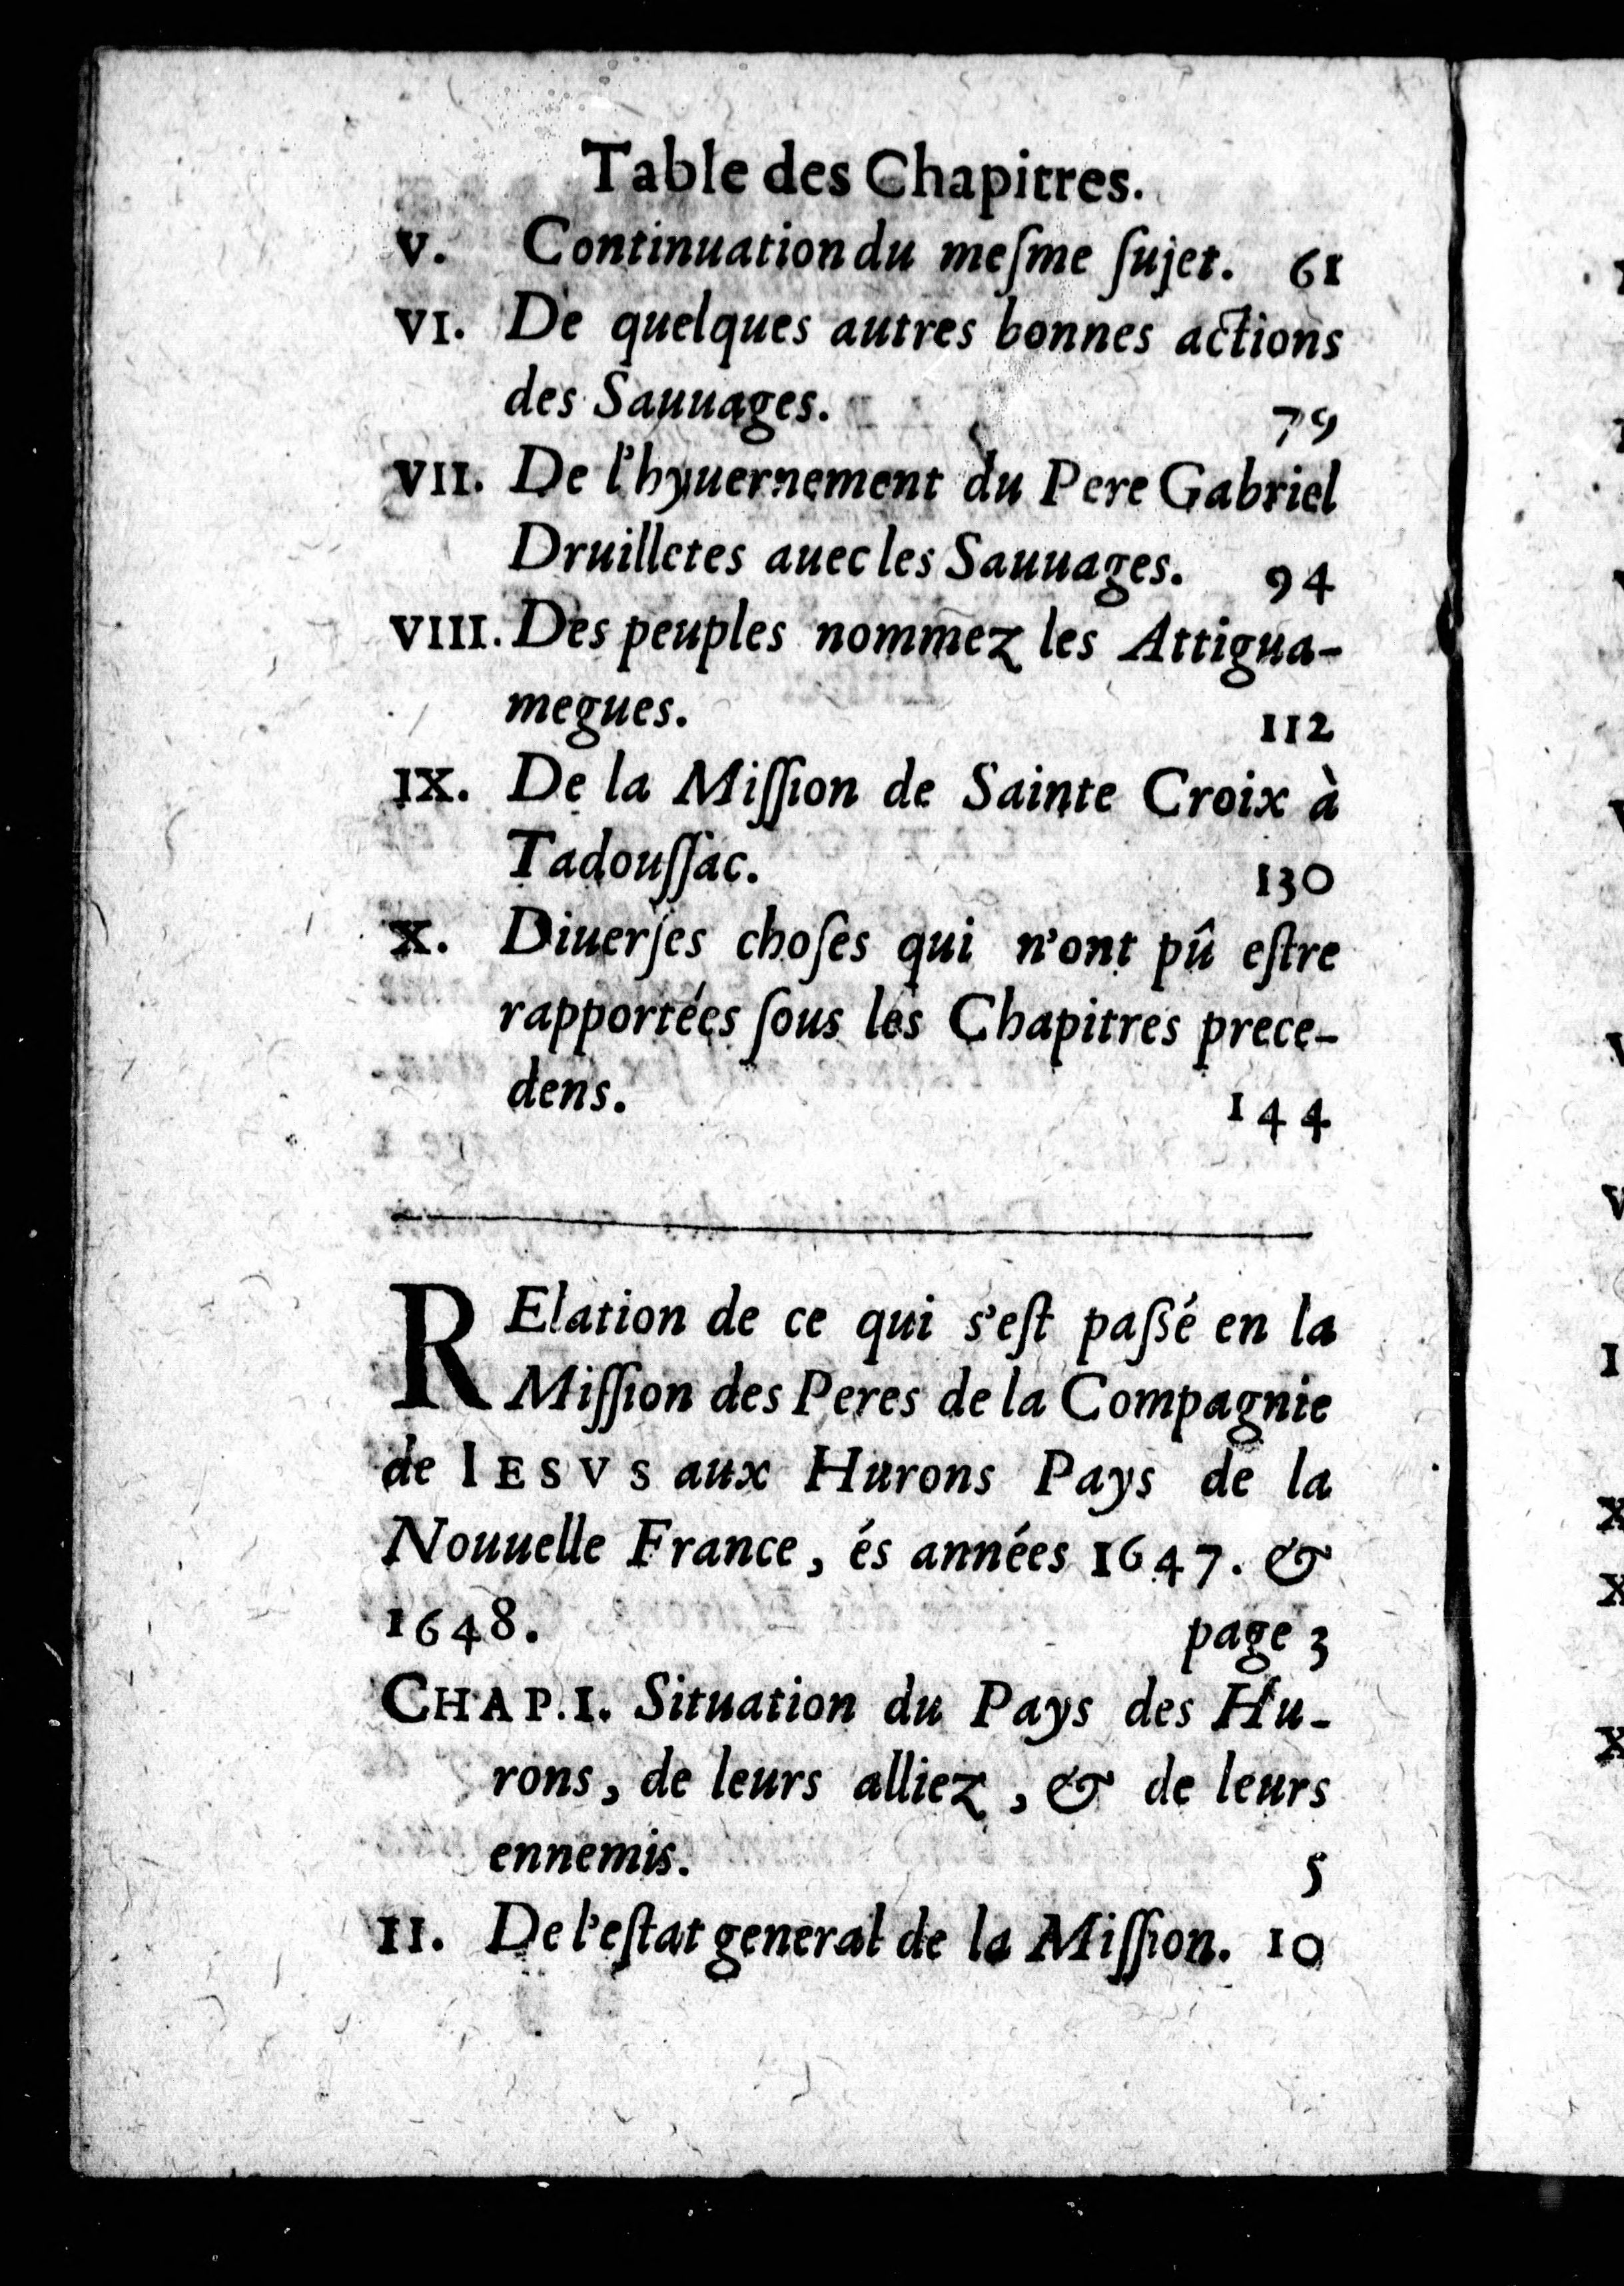 Table des Chapitres.
V. Continuation du meſme ſujet. 61
VI. De quelques autres bonnes actions
des Sauuages. 79
VII. De l'hyuernement du Pere Gabriel
Druilletes auec les Sauuages. 94
VIII. Des peuples nommez les Attigua-
megues. 112
IX. De la Miſſion de Sainte Croix à
Tadouſſac. 130
X. Diuerſes choſes qui n'ont pû eſtre
rapportées ſous les Chapitres prece-
dens. 144
RElation de ce qui s'eſt paſsé en la
Miſſion des Peres de la Compagnie
de IESVS aux Hurons Pays de la
Nouuelle France, és années 1647. &
1648. page 3
CHAP. I. Situation du Pays des Hu-
rons, de leurs alliez, & de leurs
ennemis. 5
II. De l'eſtat general de la Miſſion. 10